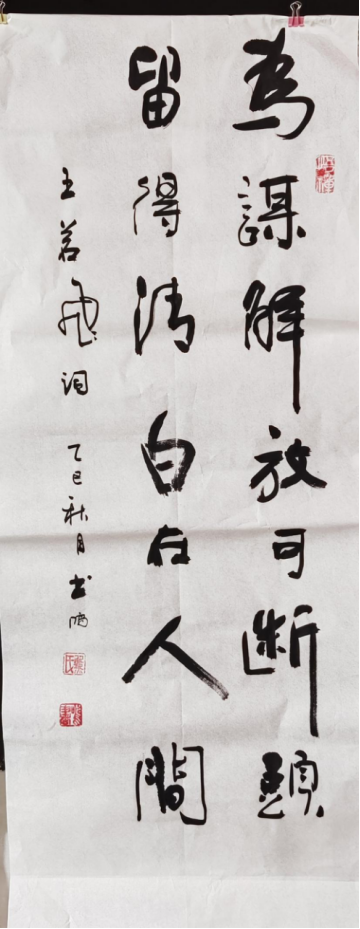 為謀解放可断頭
留得清白在人間
王若飛词 乙巳秋月 书